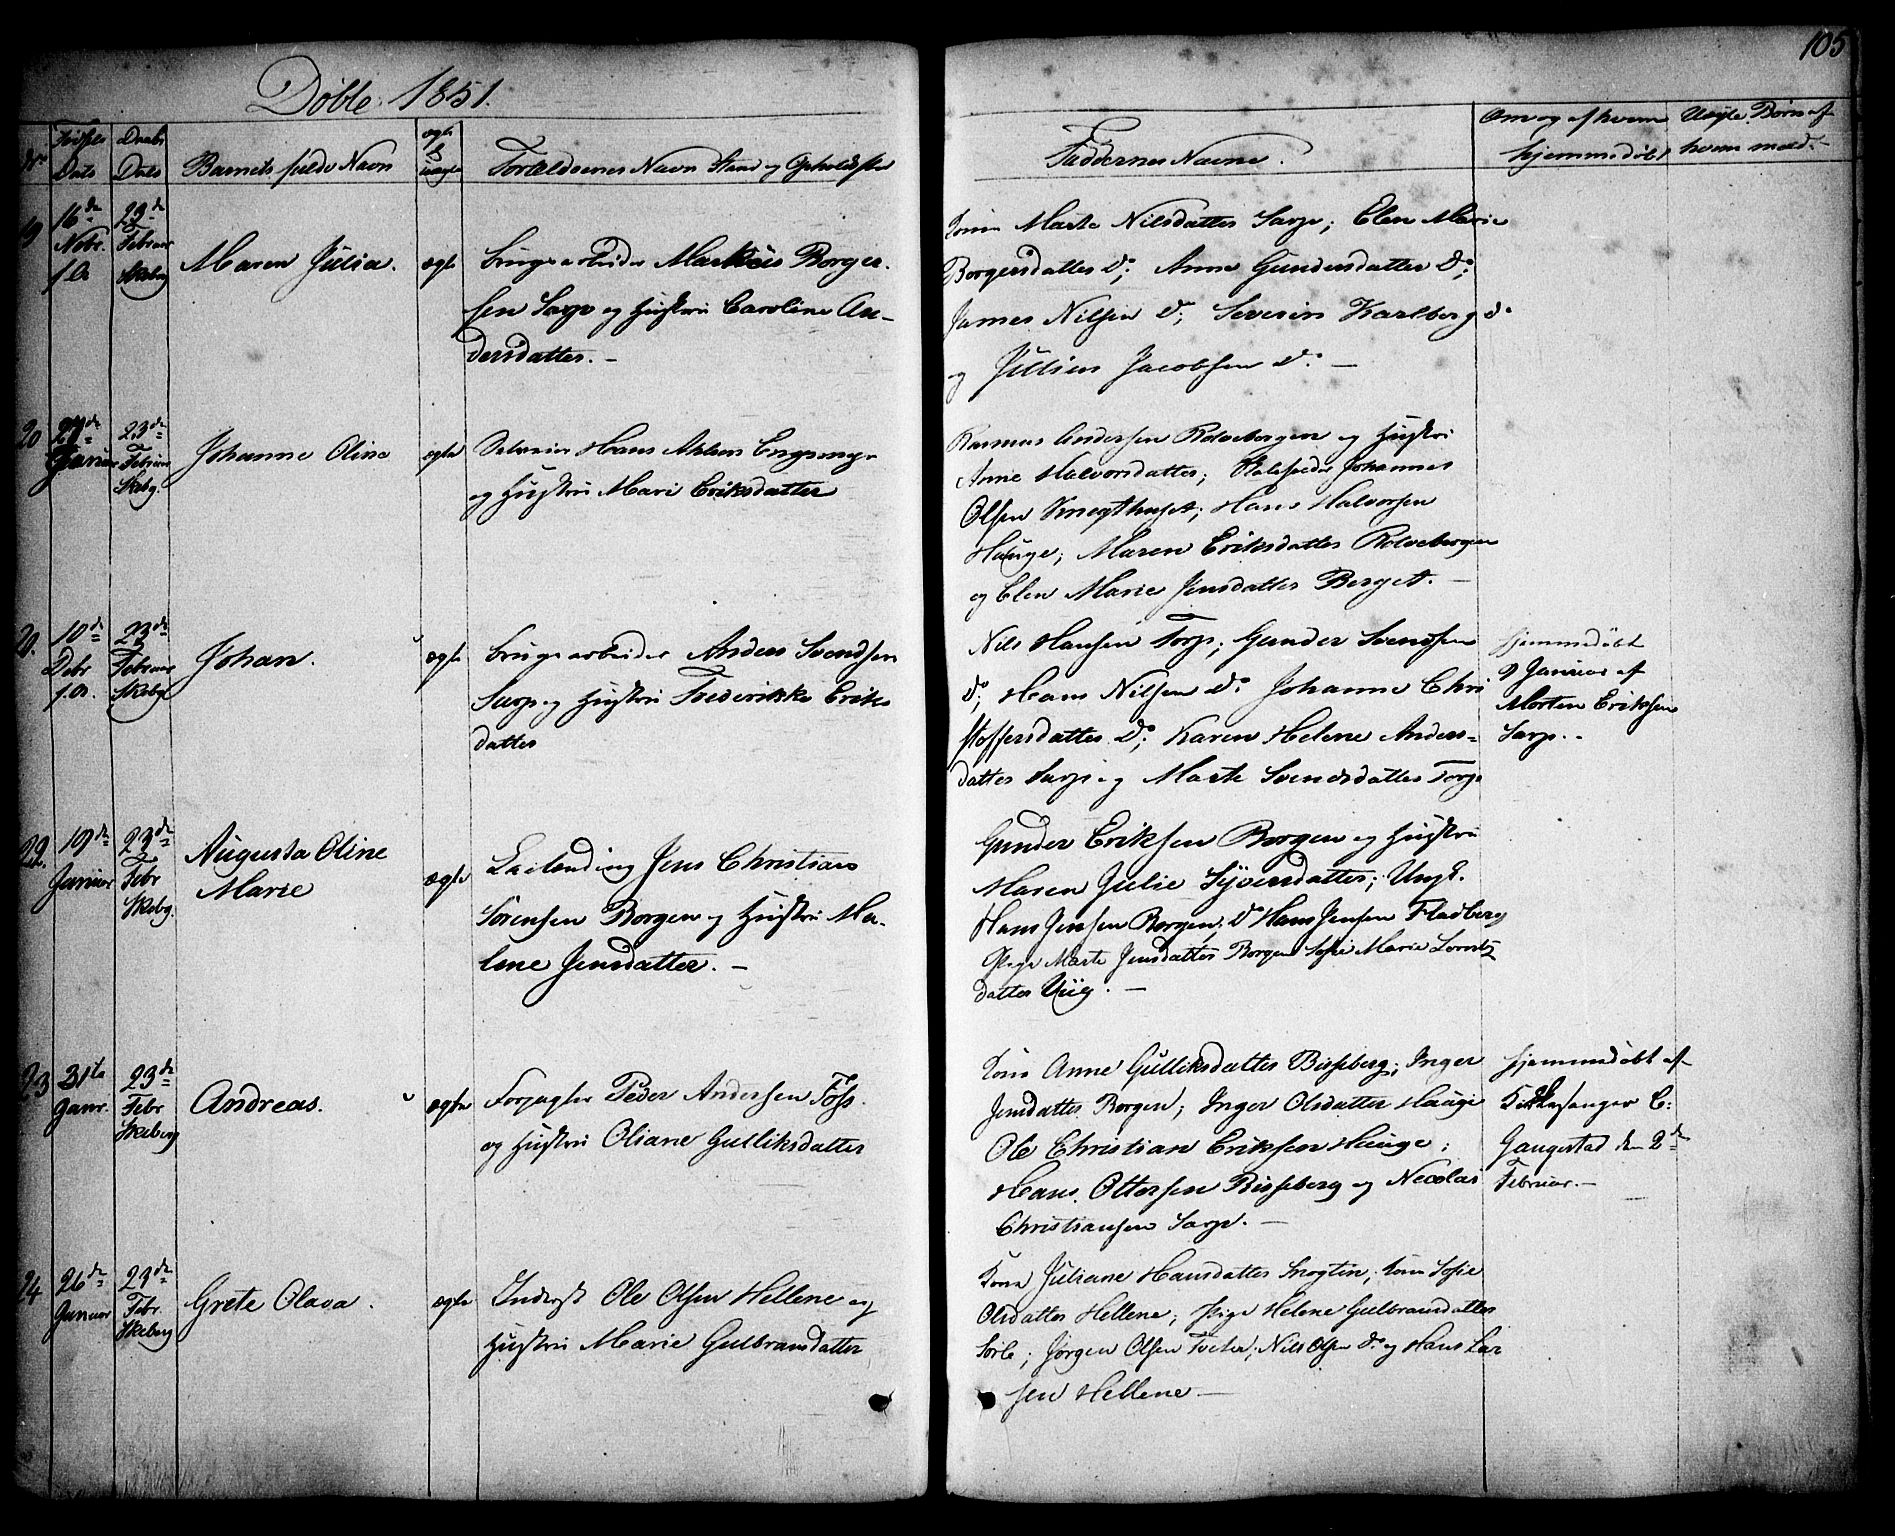 105
Döbte 1851.
No
Fødsels Dato
Daabs Dato
Barnets fulde Navn
ægte & uægte
Forældrenes Navn Stand og Opholdsste
Faddernes Navne.
Om og af hvem hjemmedøbt
Uægte Børn af hvem med.
19
16de Nobr. f. A.
23de Februar Skeberg
Maren Julia.
ægte
Brugsarbeider Markus Borger-
sen Sarp og Hustru Caroline An-
dersdatter. –
Kone Marte Nilsdatter Sarp; Elen Marie
Borgersdatter do; Anne Gundersdatter do;
James Nilsen do; Severin Karlberg do
og Julius Jacobsen do. —
20
27de Januar
23de Februar Skebg.
Johanne Oline
ægte
Hans
og Hustru Mari Eriksdatter
Rasmus Andersen Rolvsbergen og Hustru
Anne Halvorsdatter; Johannes
Olsen Knegthuset; Hans Halvorsen
Hauge; Maren Eriksdatter Rolvsbergen
og Elen Marie Jensdatter Berget. —
20.
10de Debr f. A.
23de Februar Skebg
Johan.
ægte
Brugsarbeider Anders Svendsen
Sarp og Hustru Frederikke Eriks
datter
Nils Hansen Torp; Gunder Svendsen
do; Hans Nilsen do. Johanne Chri
stoffersdatter do; Karen Helene Anders=
datter Sarp og Marte Svendsdatter Torp
hjemmedøbt
9 Januar af
Morten Eriksen
Sarp. -
22.
19de Januar
23de Febr Skebg.
Augusta Oline
Marie
ægte
Leilending Jens Christian
Sørensen Borgen og Hustru Ma-
lene Jensdatter. –
Gunder Eriksen Borgen og Hustru
Maren Julie Syversdatter; Ungk.
Hans Jensen Borgen; do Hans Jensen Fladberg
Pige Marte Jensdatter Borgen Sofie Marie Lorntz
datter Viig. —
23
31te Januar.
23de Febr Skeberg
Andreas.
ægte
Peder Andersen Foss
og Hustru Oliane Gulliksdatter
Kone Anne Gulliksdatter Bisseberg; Inger
Jensdatter Borgen; Inger Olsdatter Hauge
Ole Christian Eriksen Hauge;
Hans Ottersen Bisseberg og Necolai
Christiansen Sarp. —
hjemmedøbt af
Kirkesanger C:
Gaugestad den 2de
Februar. –
24
26de Januar
23de Febr. Skeberg
Grete Olava.
ægte
Inderst Ole Olsen Hellene og
Hustru Marie Gulbransdatter
Kone Juliane Hansdatter; Kone Sofie
Olsdatter Hellene; Pige Helene Gulbransdatter
Sorle; Jørgen Olsen Tveter; Nils Olsen do. og Hans Lar
sen Hellene —